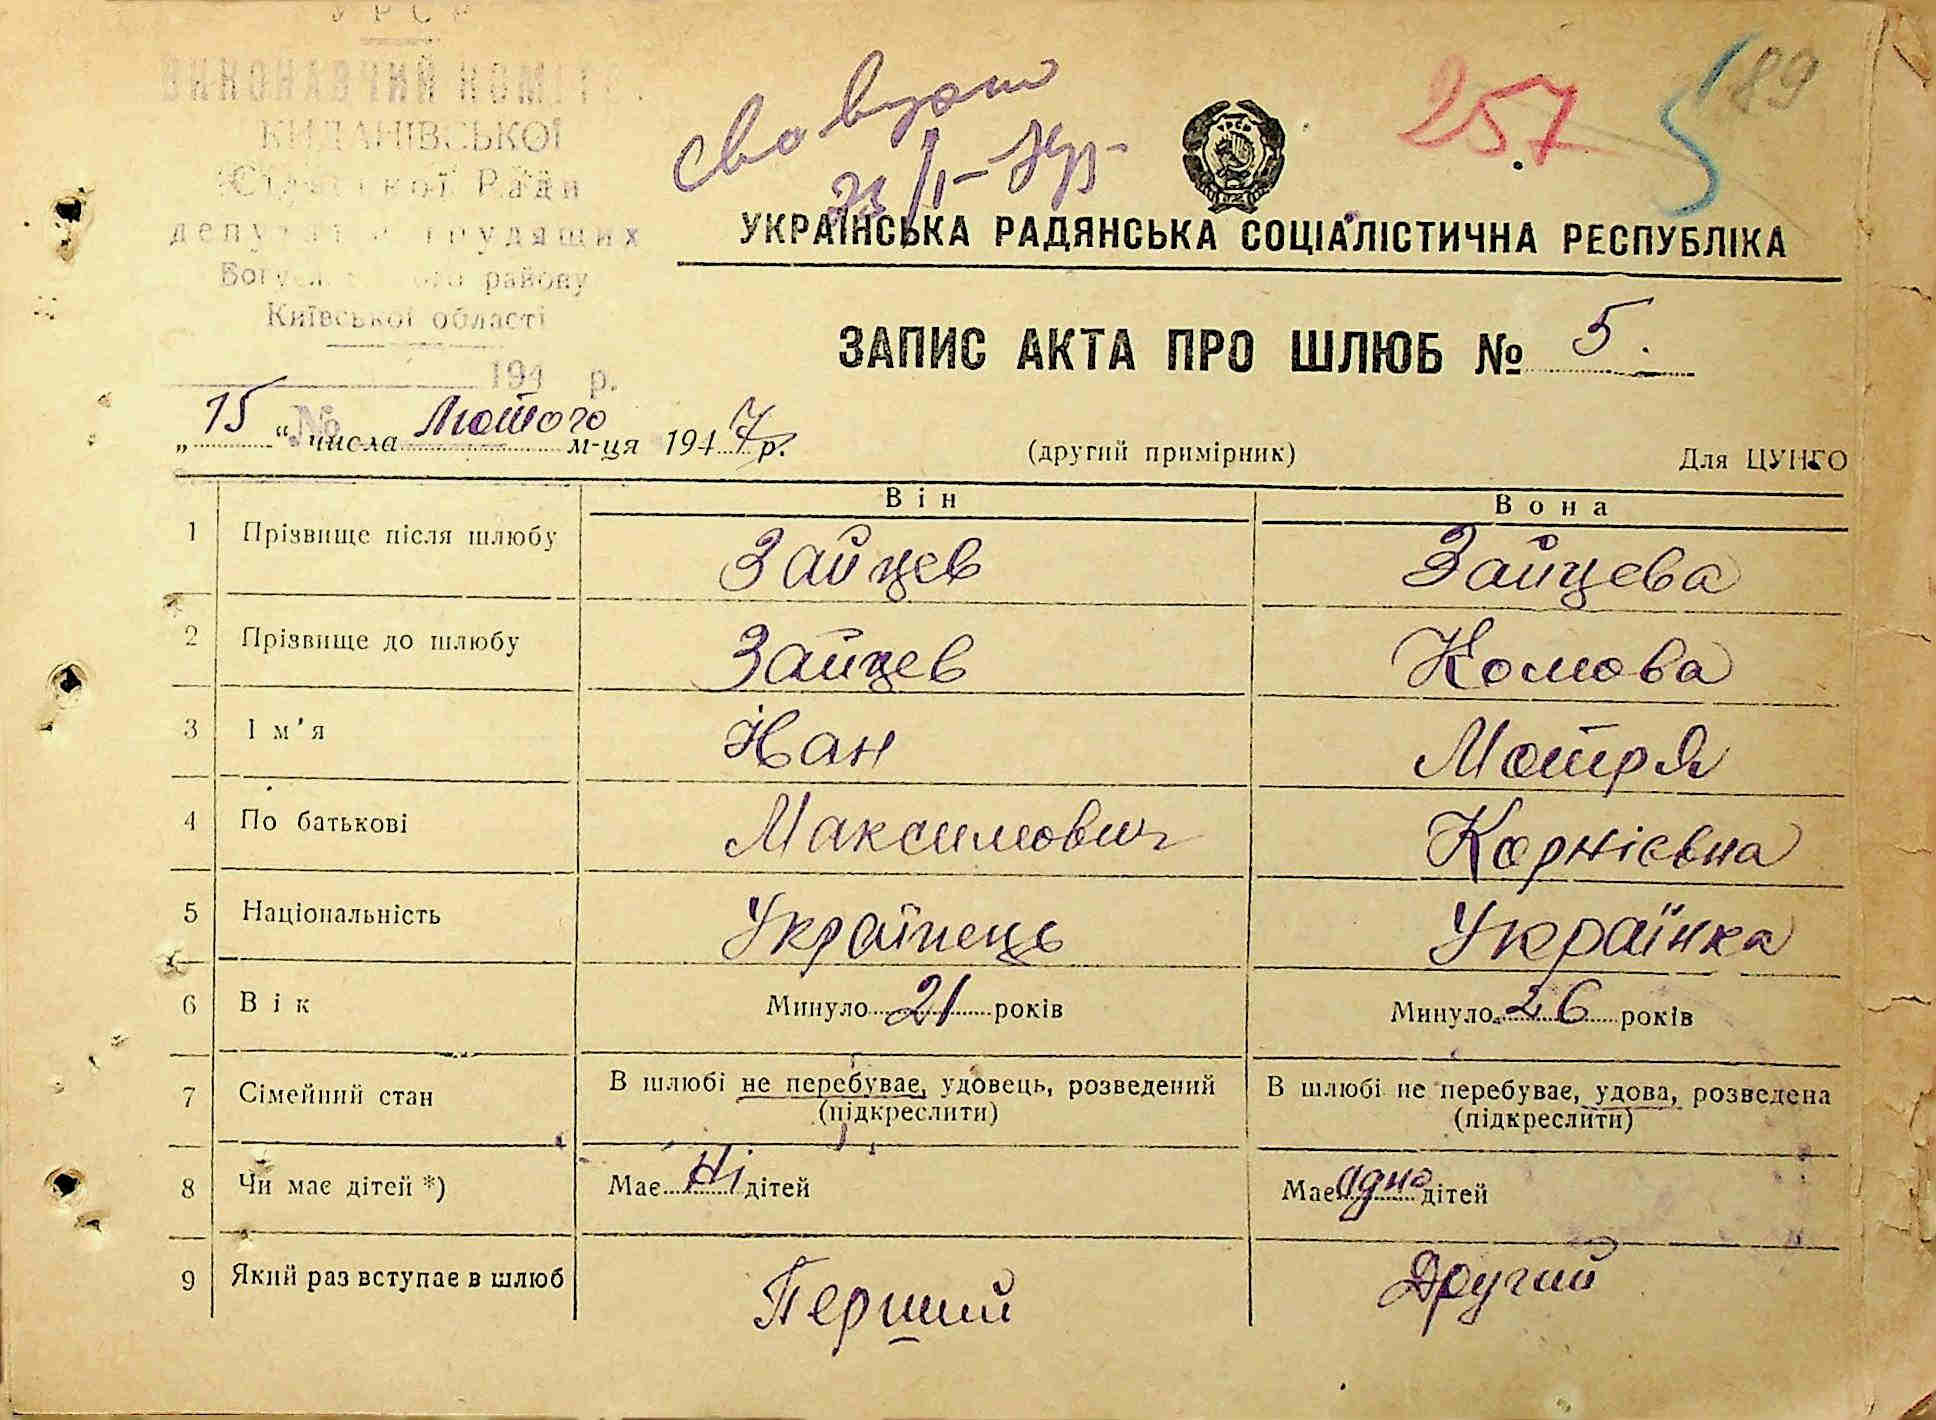 УРСР
ВИКОНАВЧИЙ КОМІТЕ
КИДАНІВСЬКОЇ
Сільської Ради
депутатів трудящих
Богуславського району
Київської області
194 р.
№
257
5
189
УКРАЇНСЬКА РАДЯНСЬКА СОЦІАЛІСТИЧНА РЕСПУБЛІКА
ЗАПИС АКТА ПРО ШЛЮБ № 5.
„15“ числа Лютого м-ця 1947 р.
(другий примірник)
Для ЦУНГО
Він Вона
1 Прізвище після шлюбу Зайцев Зайцева
2 Прізвище до шлюбу Зайцев Комова
3 Ім'я Іван Мотря
4 По батькові Максимович Корнієвна
5 Національність Українець Українка
6 Вік Минуло 21 років Минуло 26 років
7 Сімейний стан В шлюбі не перебуває, удовець, розведений (підкреслити) В шлюбі не перебуває, удова, розведена (підкреслити)
8 Чи має дітей *) Має Ні дітей Має одно дітей
9 Який раз вступає в шлюб Перший Другий